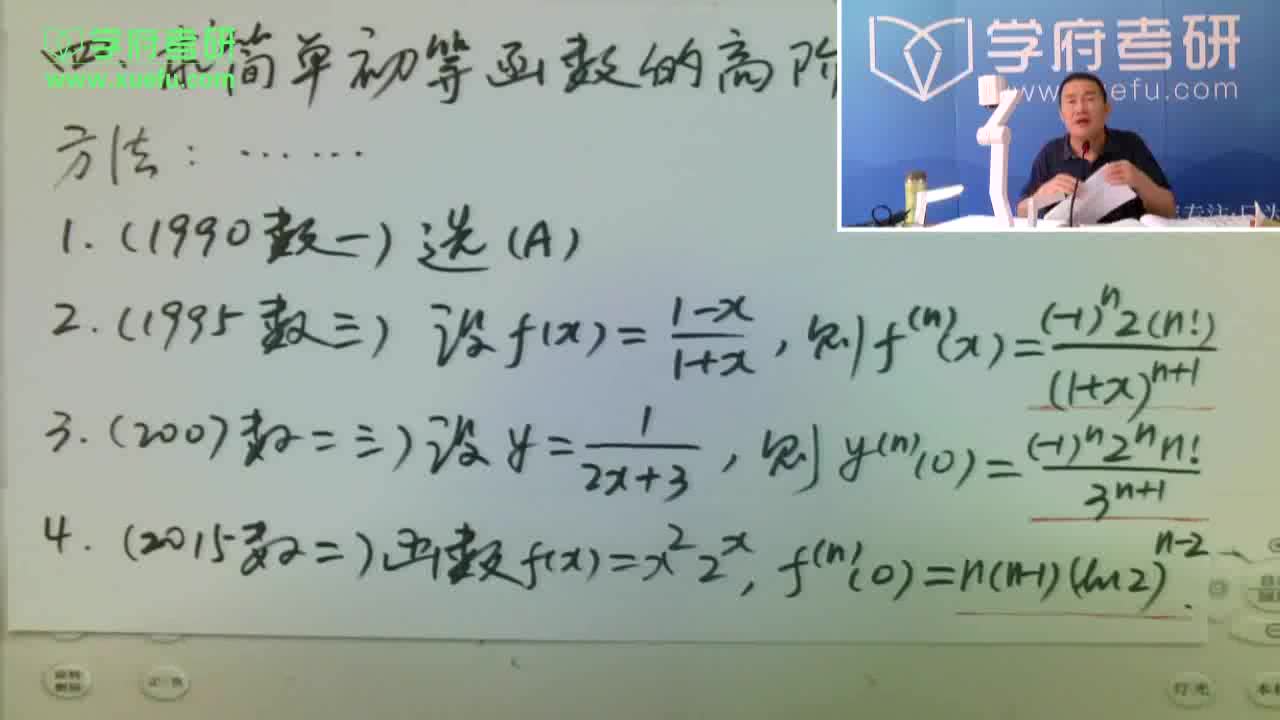 学府考研
www.xuefu.com
简单初等函数的高阶
学府考研
www.xuefu.com
方法：……
1.(1990数一)选(A)
2.(1995数三)设f(x)=\frac{1-x}{1+x}，则f^{(n)}(x)=\frac{(-1)^n2(n!)}{(1+x)^{n+1}}
3.(2007数二三)设y=\frac{1}{2x+3}，则y^{(n)}(0)=\frac{(-1)^n2^nn!}{3^{n+1}}
4.(2015数二)函数f(x)=x^22^x，f^{(n)}(0)=n(n-1)(ln2)^{n-2}.
灯光